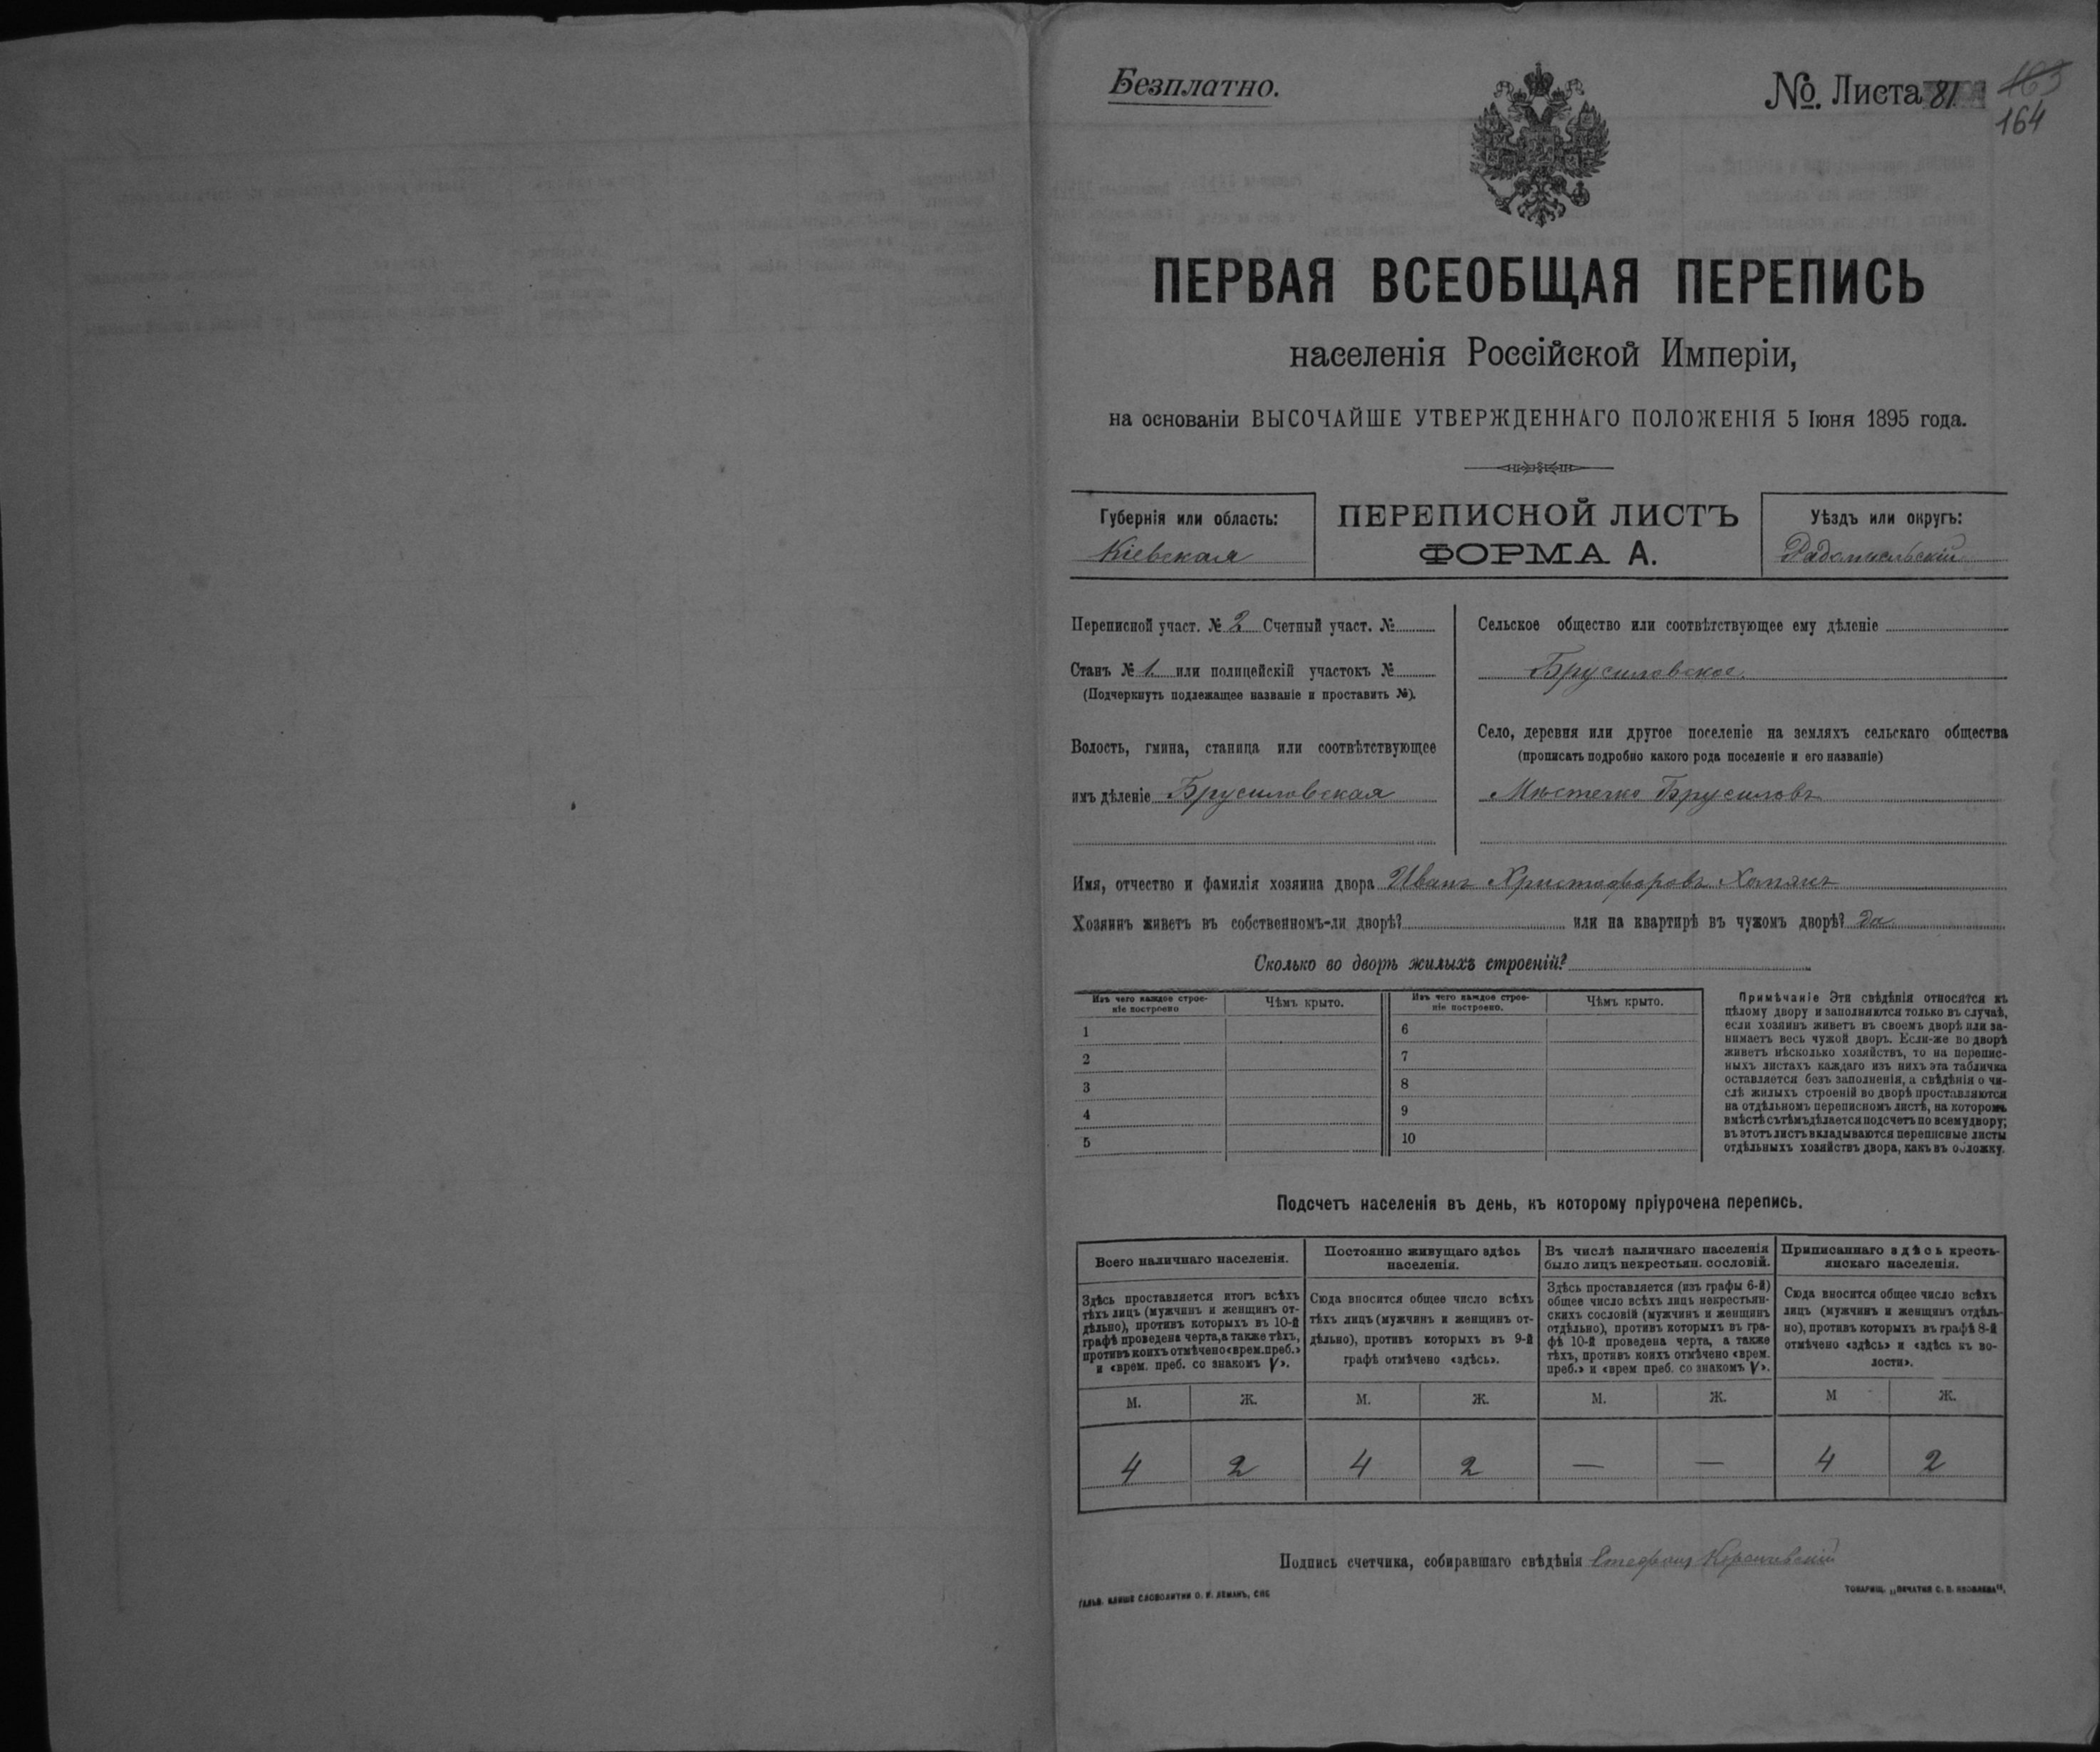 Безплатно.
№. Листа 81
163
164
ПЕРВАЯ ВСЕОБЩАЯ ПЕРЕПИСЬ
населенія Россійской Имперіи,
на основаніи ВЫСОЧАЙШЕ УТВЕРЖДЕННАГО ПОЛОЖЕНІЯ 5 Іюня 1895 года.
Губернія или область:
Кіевская
ПЕРЕПИСНОЙ ЛИСТЪ
ФОРМА А.
Уѣздъ или округъ:
Радомысльскій
Переписной участ. № 2 Счетный участ. №
Станъ № 1. или полицейскій участокъ №
(Подчеркнуть подлежащее названіе и проставить №).
Волость, гмина, станица или соотвѣтствующее
имъ дѣленіе Брусиловская
Сельское общество или соотвѣтствующее ему дѣленіе
Брусиловское.
Село, деревня или другое поселеніе на земляхъ сельскаго общества
(прописать подробно какого рода поселеніе и его названіе)
Мѣстечко Брусиловъ
Имя, отчество и фамилія хозяина двора Иванъ Христофоровъ Хомякъ
Хозяинъ живетъ въ собственномъ-ли дворѣ? или на квартирѣ въ чужомъ дворѣ? Да
Сколько во дворѣ жилыхъ строеній?
Изъ чего каждое строе-
ніе построено
Чѣмъ крыто.
Изъ чего каждое строе-
ніе построено.
Чѣмъ крыто.
1
6
2
7
3
8
4
9
5
10
Примѣчаніе Эти свѣдѣнія относятся къ
цѣлому двору и заполняются только въ случаѣ,
если хозяинъ живетъ въ своемъ дворѣ или за-
нимаетъ весь чужой дворъ. Если-же во дворѣ
живетъ нѣсколько хозяйствъ, то на перепис-
ныхъ листахъ каждаго изъ нихъ эта табличка
оставляется безъ заполненія, а свѣдѣнія о чи-
слѣ жилыхъ строеній во дворѣ проставляются
на отдѣльномъ переписномъ листѣ, на которомъ
вмѣстѣ съ тѣмъ дѣлается подсчетъ по всему двору;
въ этотъ листъ вкладываются переписные листы
отдѣльныхъ хозяйствъ двора, какъ въ обложку.
Подсчетъ населенія въ день, къ которому пріурочена перепись.
Всего наличнаго населенія.
Постоянно живущаго здѣсь
населенія.
Въ числѣ наличнаго населенія
было лицъ некрестьян. сословій.
Приписаннаго здѣсь кресть-
янскаго населенія.
Здѣсь проставляется итогъ всѣхъ
тѣхъ лицъ (мужчинъ и женщинъ от-
дѣльно), противъ которыхъ въ 10-й
графѣ проведена черта, а также тѣхъ,
противъ коихъ отмѣчено «врем. преб.»
и «врем. преб. со знакомъ V».
Сюда вносится общее число всѣхъ
тѣхъ лицъ (мужчинъ и женщинъ от-
дѣльно), противъ которыхъ въ 9-й
графѣ отмѣчено «здѣсь».
Здѣсь проставляется (изъ графы 6-й)
общее число всѣхъ лицъ некрестьян-
скихъ сословій (мужчинъ и женщинъ
отдѣльно), противъ которыхъ въ гра-
фѣ 10-й проведена черта, а также
тѣхъ, противъ коихъ отмѣчено «врем.
преб.» и «врем преб. со знакомъ V».
Сюда вносится общее число всѣхъ
лицъ (мужчинъ и женщинъ отдѣль-
но), противъ которыхъ въ графѣ 8-й
отмѣчено «здѣсь» и «здѣсь къ во-
лости».
М. Ж. М. Ж. М. Ж. М Ж.
4 2 4 2 — — 4 2
Подпись счетчика, собиравшаго свѣдѣнія Стефанъ
ГАЛЬВ. КЛИШЕ СЛОВОЛИТНИ О. И. ЛЕМАНЪ, СПБ
ТОВАРИЩ. „ПЕЧАТНЯ С. П. ЯКОВЛЕВА“.